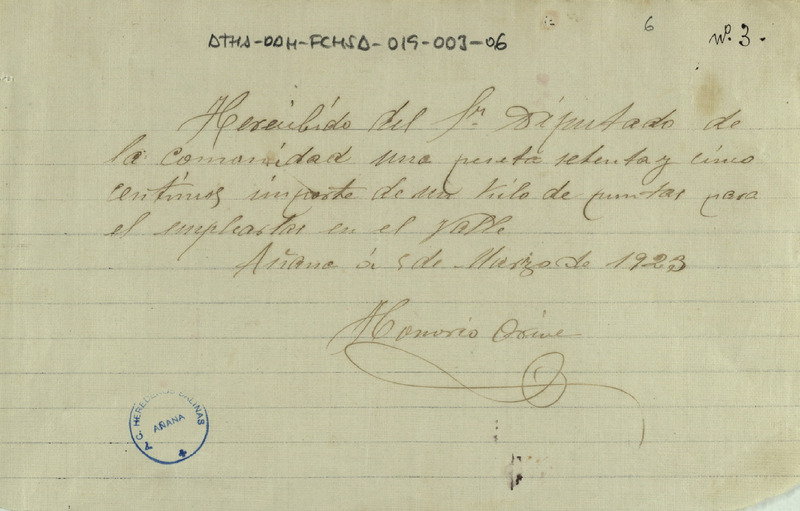 6
Nº 3.
ATHA-DAH-FCHSA-019-003-06
He recibido del Sr. Diputado de
la comunidad una peseta setenta y cinco
centimos importe de un kilo de puntas para
el emplearlas en el Valle
Añana á 5 de Marzo de 1923
Honorio Orive
G. HEREDEROS SALINAS
AÑANA